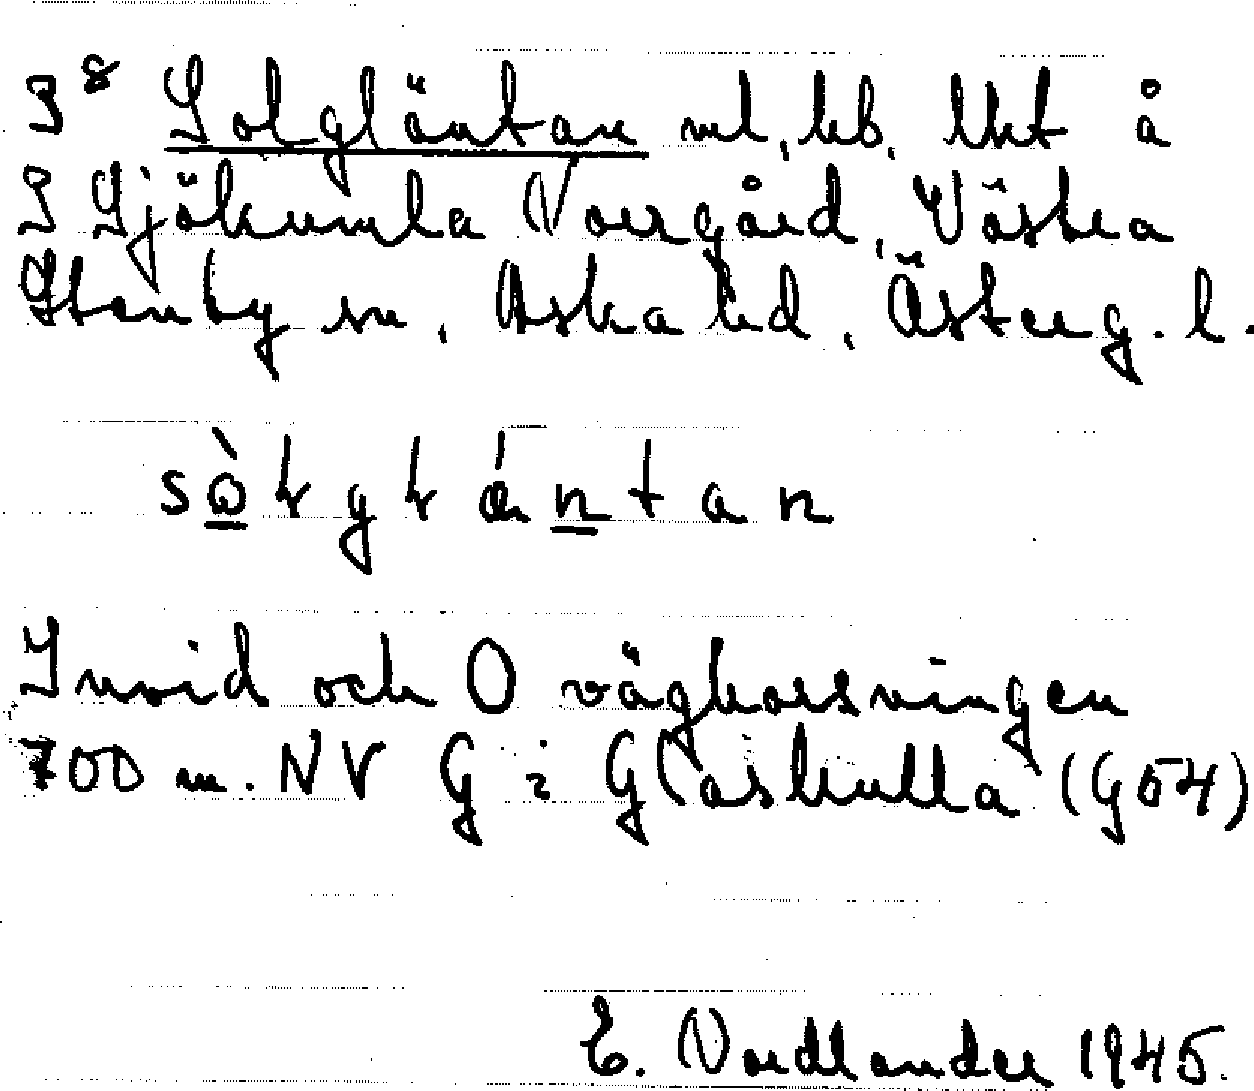 3⁸ Solgläntan ml, hb. lht å
3 Sjökumla Norrgård, Västra
Stenby sn, Aska hd, Österg. l.
sò̲lglǽn̲tan
Invid och O vägkorsningen
700 m. NV G i Glaskulla (G54)
E. Nordlander 1945.